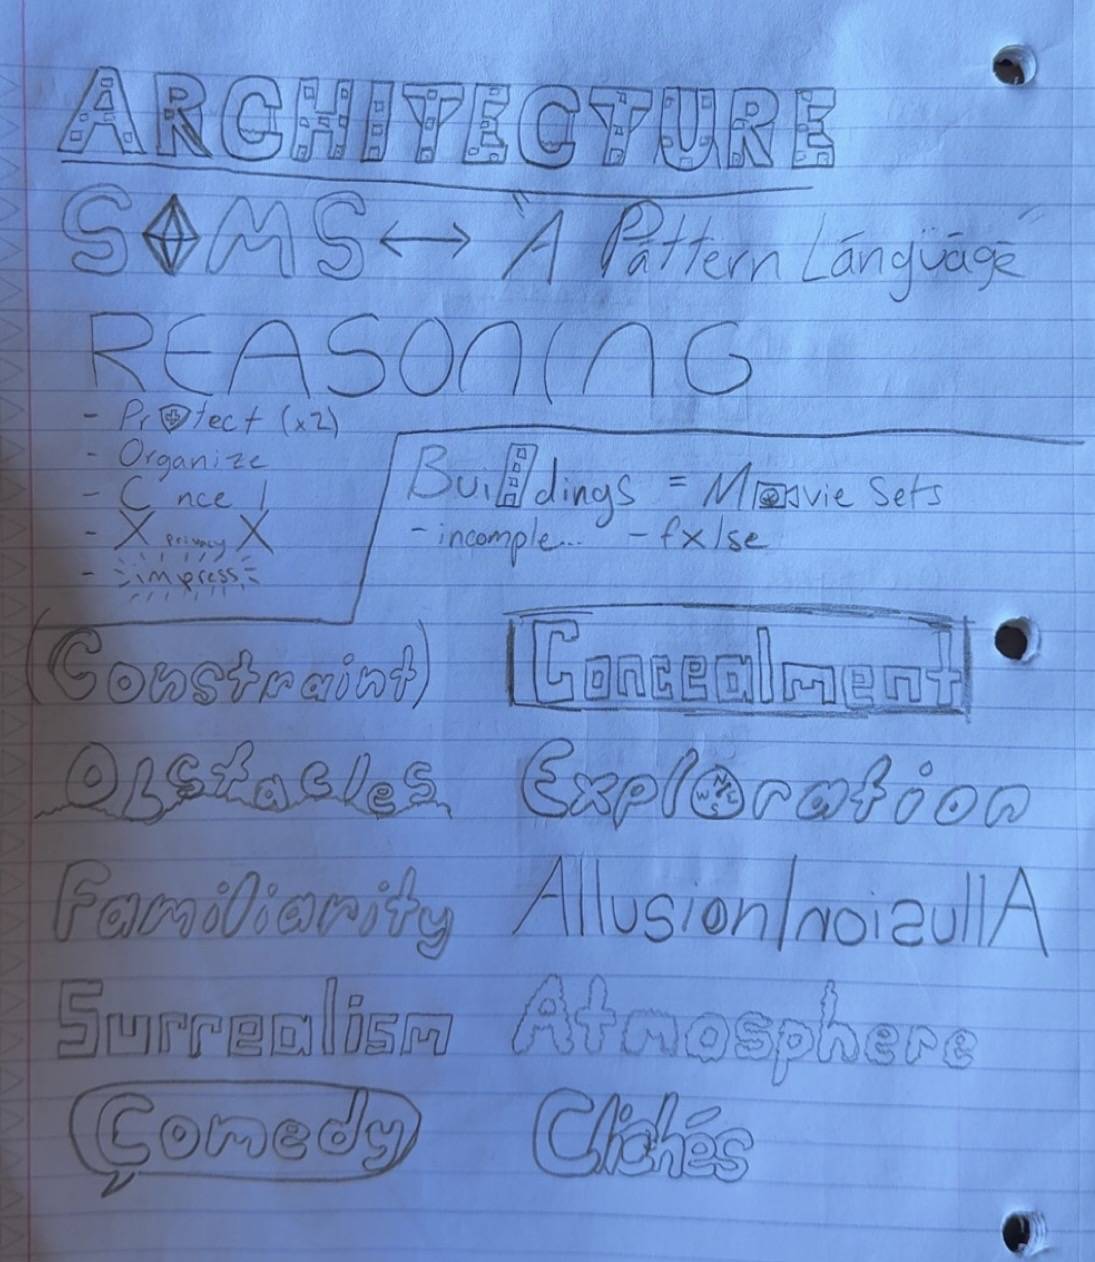 ARCHITECTURE
SIMS ↔ "A Pattern Language"
REASONING
- Protect (x2)
- Organize
- C nce l
- X privacy X
- impress
Buildings = Movie Sets
- incomple... - fx/se
(Constraint)
Concealment
Obstacles
Exploration
Familiarity
Allusion/noisullA
Surrealism
Atmosphere
Comedy
Clichés